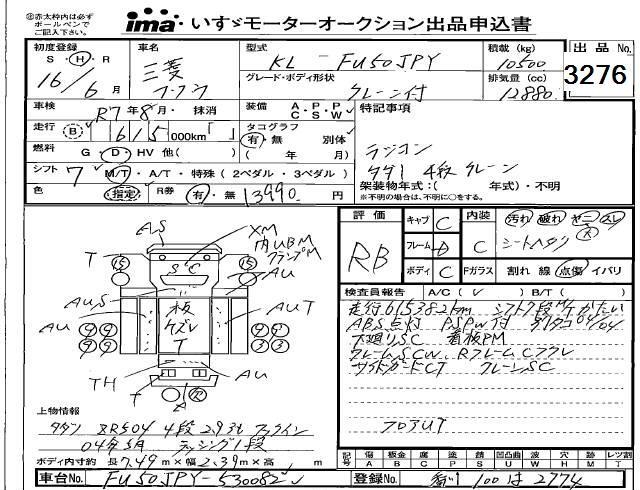 ㊟赤太枠内は必ず
ボールペンで
ご記入下さい。
ima いすゞモーターオークション出品申込書
初度登録 S・H・R 16/6月
車名 三菱 フソウ
型式 KL - FU50JPY
積載 (kg) 10500
出品No. 3276
グレード・ボディ形状 クレーン付
排気量 (cc) 12880
車検 R7年8月・抹消
装備 A・P・P C・S・W
特記事項
走行 B 615 000km「 」
タコグラフ 有・無 別体 ( 年 月)
ラジコン
タダノ 4段クレーン
燃料 G・D・HV 他( )
シフト 7 M/T・A/T・特殊 (2ペダル・3ペダル)
架装物年式:( 年式)・不明
※不明の場合は、不明に○をする。
色 指定 R券 有・無 13990 円
評価 RB
キャブ C
フレーム D
ボディ C
内装 C
Fガラス
汚れ 破れ ヤニ スレ 大
シートヘタリ
割れ 線 点傷 イバリ
検査員報告 A/C(✓) B/T( )
走行615382km シフト7段M/Tかたい
ABS点灯 PSPW付 デジタコ04/04
下廻りSC 看板PM
クレームSCW、RフレームCフクレ
サイドガードCT クレーンSC
フロアUT
AS
XM
内UBM
クランプM
T
15
15
AU
SC
AUS
板
ケズレ
T
AUT
AU
9 9
9 9
9 9
3 3
TH
AU
T
A
欠
上物情報
タダノ ZR504 4段 2.93t フックイン
04年5月 ラッシング1段
ボディ内寸約 長7.49m×幅2.39m×高 m
記号 傷 凹 板 腐 塗 錆 凸凹曲 波 穴 外 レツ割
A B C P S U W H M T
車台No. FU50JPY-530082
登録No. 100は2774